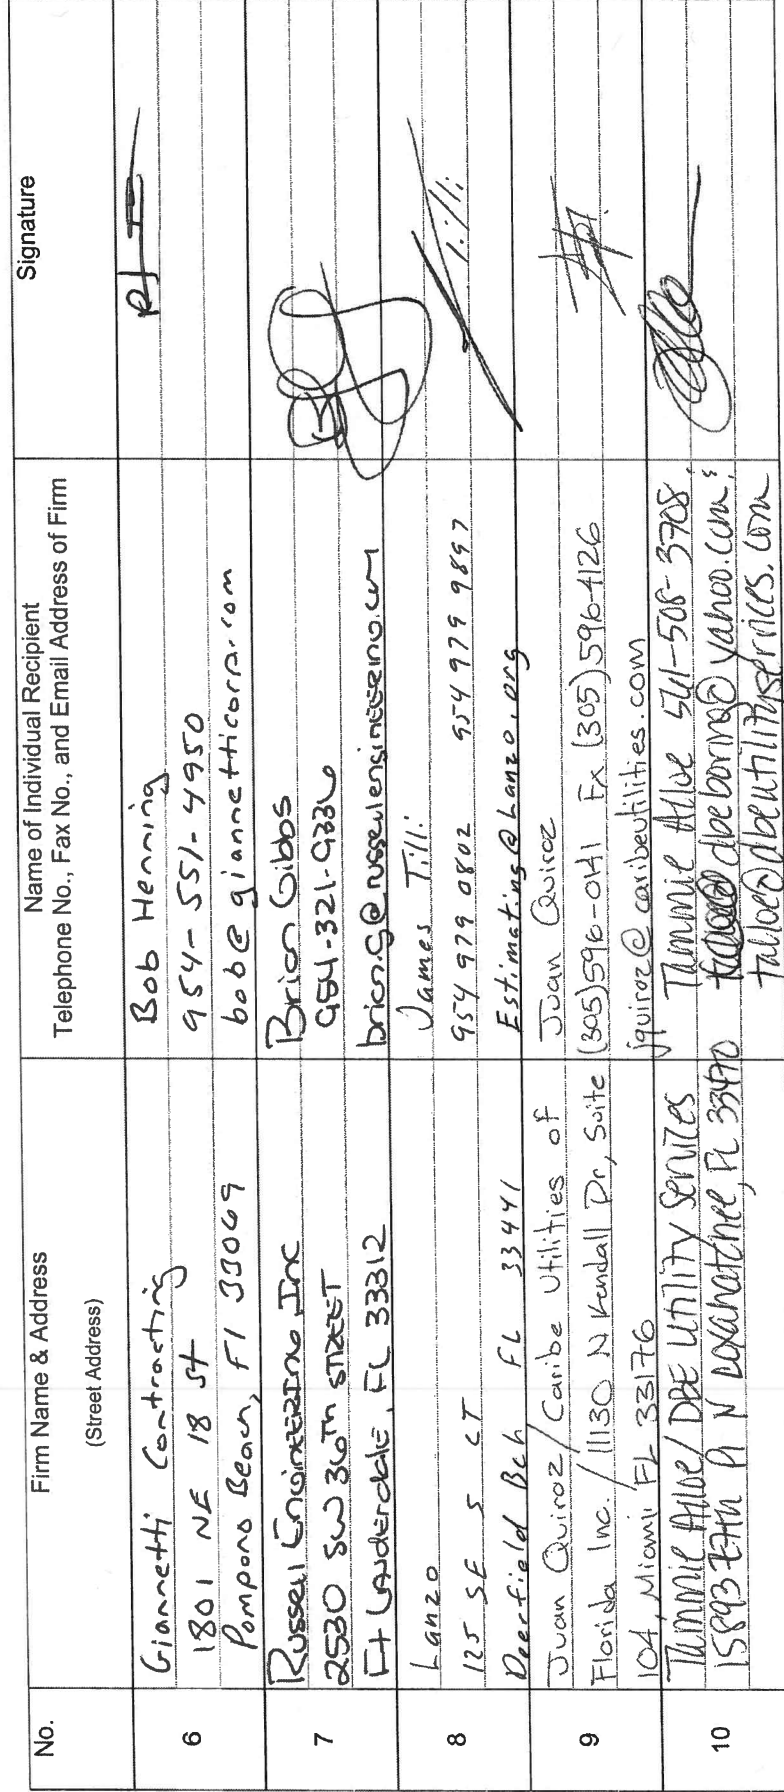 No.
Firm Name & Address
(Street Address)
Name of Individual Recipient
Telephone No., Fax No., and Email Address of Firm
Signature
6
Giannetti Contracting
1801 NE 18 St
Pompano Beach, Fl 33069
Bob Henning
954-551-4950
bob@giannetticorp.com
7
Russell Engineering, Inc
2530 SW 36th STREET
Ft Lauderdale, FL 33312
Brian Gibbs
954-321-9336
brian.g@russellengineering.com
8
Lanzo
125 SE 5 CT
Deerfield Bch FL 33441
James Tilli
954 979 0802 954 979 9897
Estimating@Lanzo.org
Tilli
9
Juan Quiroz/Caribe Utilities of
Florida Inc./11130 N Kendall Dr, Suite
104, Miami FL 33176
Juan Quiroz
(305)596-041 Fx (305)596-4126
jquiroz@caribeutilities.com
10
Tammie Alloe/DBE Utility Services
15893 77th Pl N Loxahatchee, FL 33470
Tammie Alloe 561-508-3708
dbeboring@yahoo.com;
talloe@dbeutilityservices.com